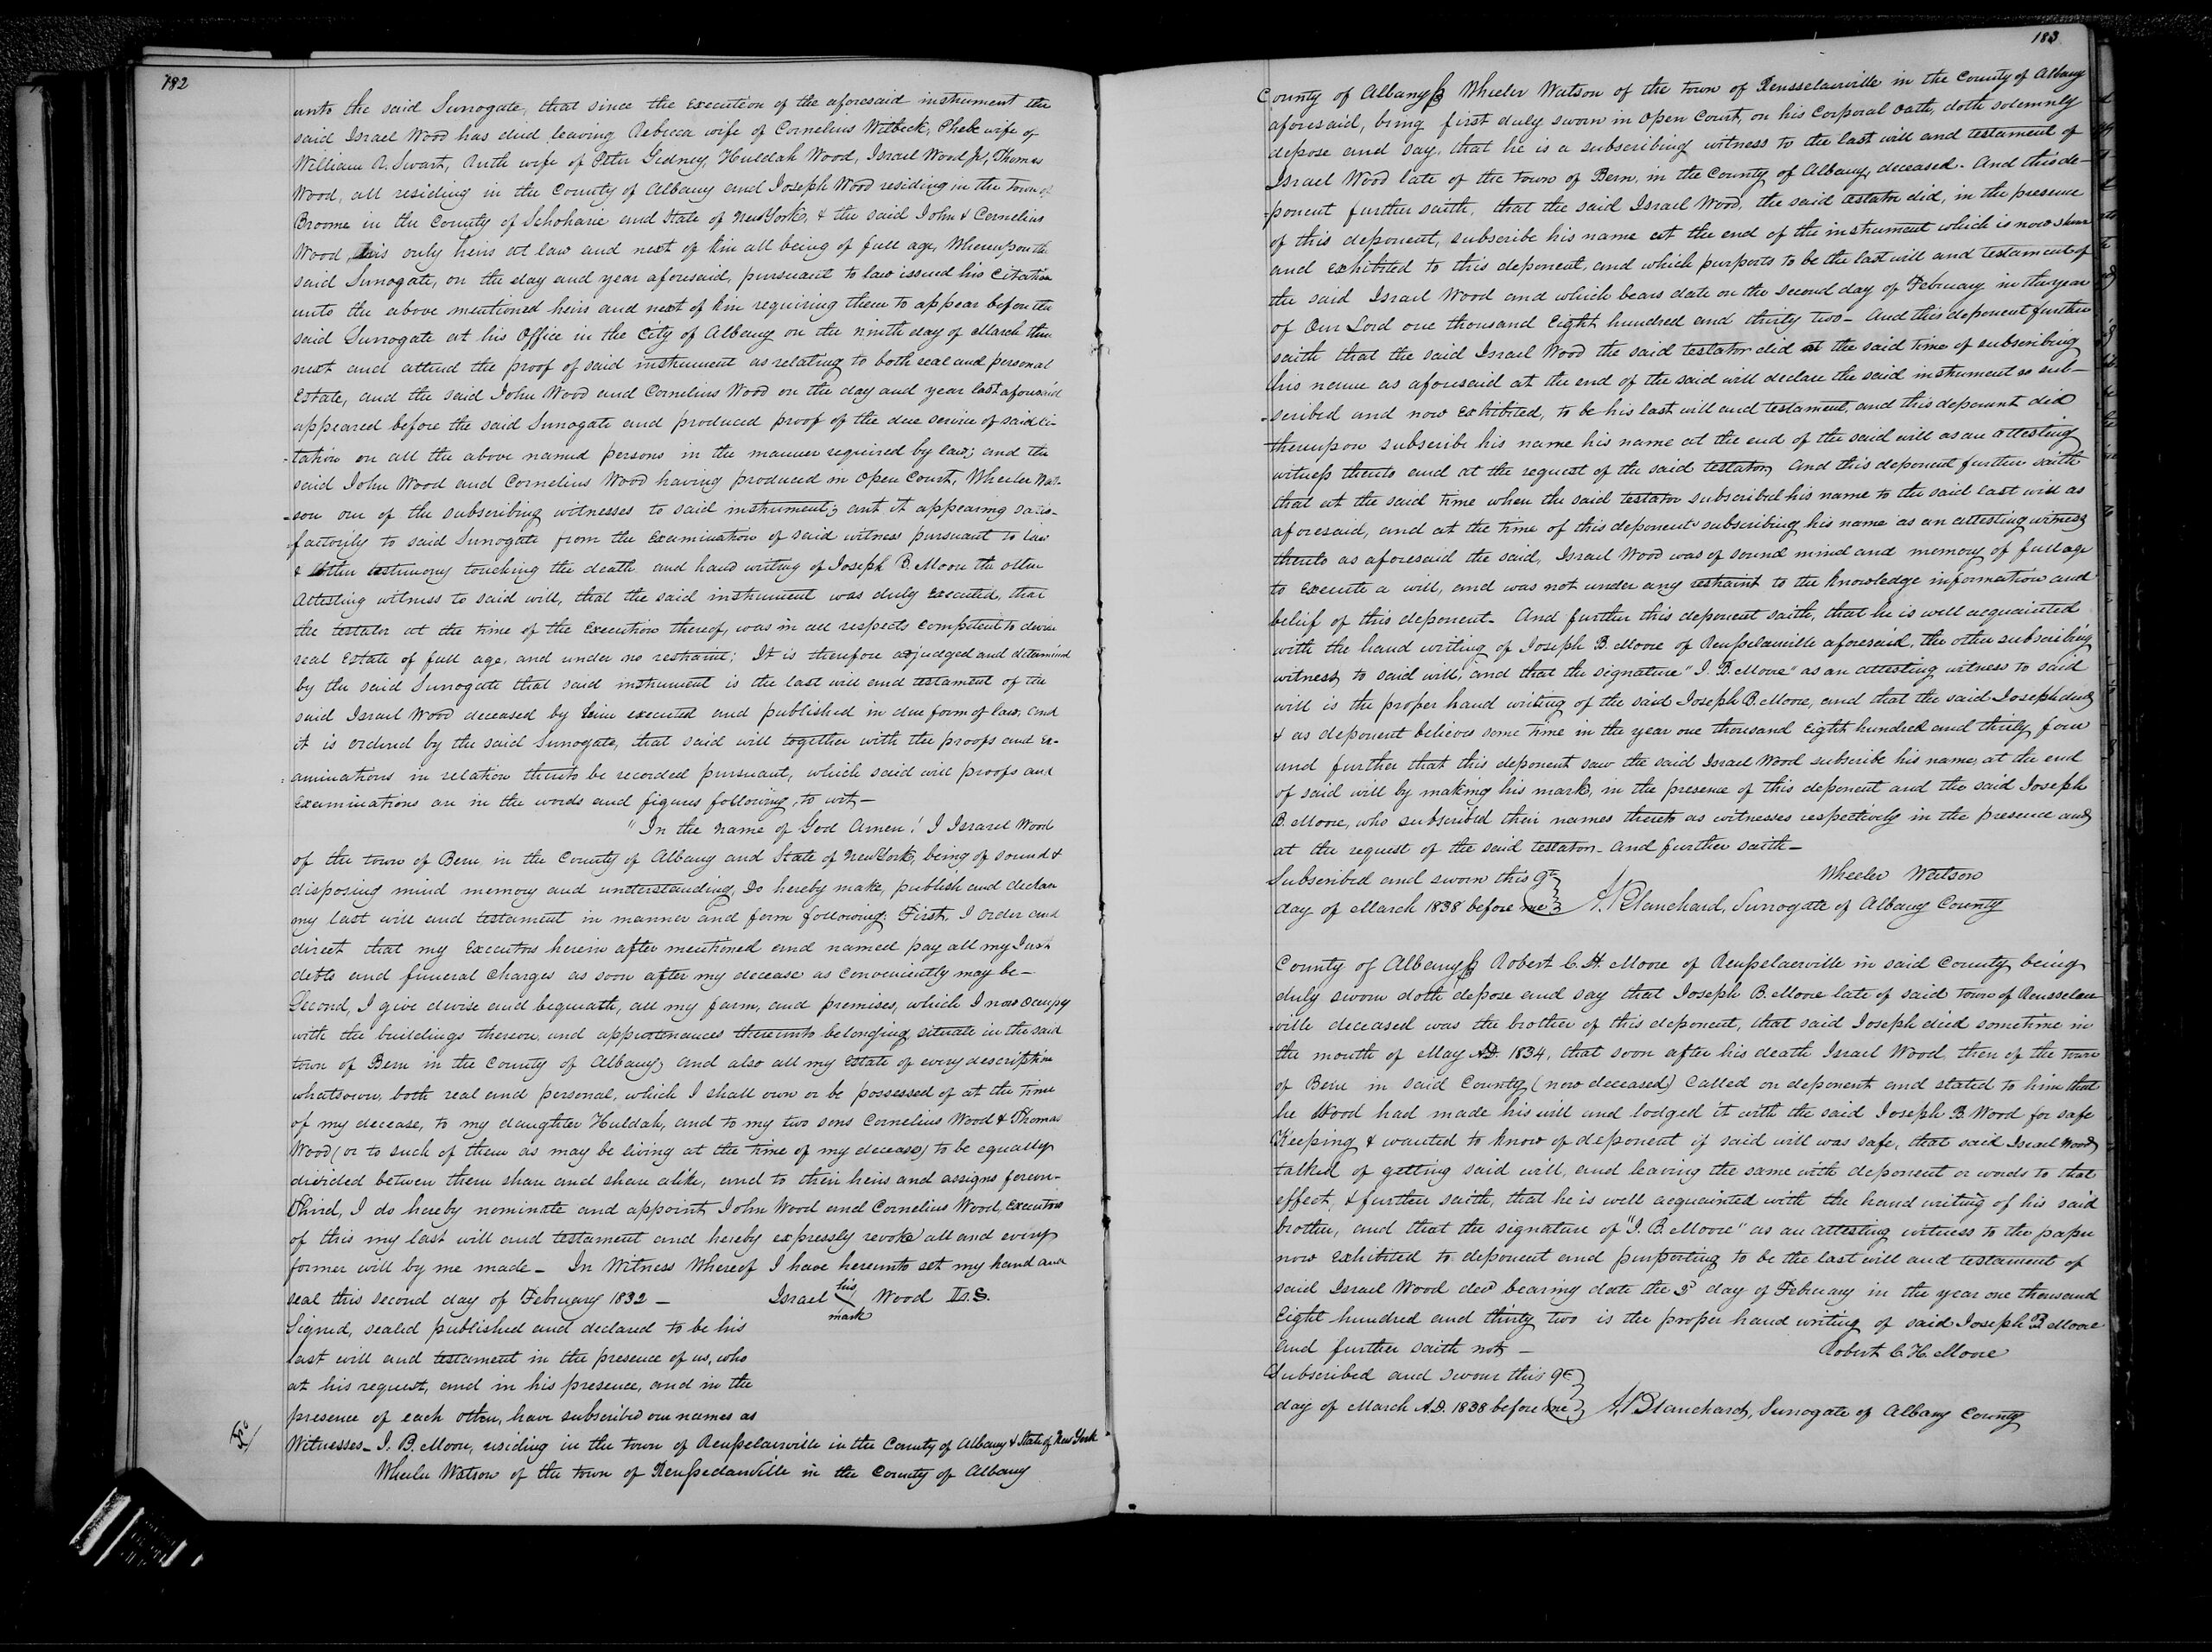 182
unto the said Surrogate, that since the execution of the aforesaid instrument the
said Israel Wood has died leaving Rebecca wife of Cornelius Witbeck, Phebe wife of
William R. Swart, Ruth wife of Peter Gidney, Huldah Wood, Israel Wood Jr, Thomas
Wood, all residing in the County of Albany and Joseph Wood residing in the Town of
Broome in the County of Schoharie and State of New York, & the said John & Cornelius
Wood, his only heirs at law and next of kin all being of full age, Whereupon the
said Surrogate, on the day and year aforesaid, pursuant to law issued his citation
unto the above mentioned heirs and next of kin requiring them to appear before the
said Surrogate at his Office in the City of Albany on the ninth day of March then
next and attend the proof of said instrument as relating to both real and personal
Estate, and the said John Wood and Cornelius Wood on the day and year last aforesaid
appeared before the said Surrogate and produced proof of the due service of said ci-
-tation on all the above named persons in the manner required by law; and the
said John Wood and Cornelius Wood having produced in open Court, Wheeler Wat-
-son one of the subscribing witnesses to said instrument; ant it appearing satis-
-factorily to said Surrogate from the Examination of said witness pursuant to law
& other testimony touching the death and hand writing of Joseph B. Moore the other
Attesting witness to said will, that the said instrument was duly executed, that
the testator at the time of the Execution thereof, was in all respects competent to devise
real Estate of full age, and under no restraint; It is therefore adjudged and determined
by the said Surrogate that said instrument is the last will and testament of the
said Israel Wood deceased by him executed and published in due form of law, and
it is ordered by the said Surrogate, that said will together with the proofs and Ex-
-aminations in relation thereto be recorded pursuant, which said will proofs and
Examinations are in the words and figures following, to wit—
"In the name of God Amen! I Israel Wood
of the town of Bern in the County of Albany and State of New York, being of sound &
disposing mind memory and understanding, Do hereby make, publish and declare
my last will and testament in manner and form following: First, I order and
direct that my Executors herein after mentioned and named pay all my Just
debts and funeral charges as soon after my decease as conveniently may be—
Second, I give devise and bequeath, all my farm, and premises, which I now occupy
with the buildings thereon and appurtenances thereunto belonging situate in the said
town of Bern in the County of Albany, and also all my Estate of every description
whatsoever, both real and personal, which I shall own or be possessed of at the time
of my decease, to my daughter Huldah, and to my two sons Cornelius Wood & Thomas
Wood (or to such of them as may be living at the time of my decease) to be equally
divided between them share and share alike, and to their heirs and assigns forever-
Third, I do hereby nominate and appoint John Wood and Cornelius Wood, Executors
of this my last will and testament and hereby expressly revoke all and every
former will by me made— In Witness Whereof I have hereunto set my hand and
seal this second day of February 1832— Israel his mark Wood L.S.
Signed, sealed published and declared to be his
last will and testament in the presence of us, who
at his request, and in his presence, and in the
presence of each other, have subscribed our names as
Witnesses— J. B. Moore, residing in the town of Rensselaerville in the County of Albany & State of New York
Wheeler Watson of the town of Rensselaerville in the County of Albany
183
County of Albany ss Wheeler Watson of the town of Rensselaerville in the County of Albany
aforesaid, being first duly sworn in open Court, on his Corporal oath, doth solemnly
depose and say, that he is a subscribing witness to the last will and testament of
Israel Wood late of the town of Bern, in the County of Albany, deceased. And this de-
-ponent further saith, that the said Israel Wood, the said testator did, in the presence
of this deponent, subscribe his name at the end of the instrument which is now shewn
and exhibited to this deponent, and which purports to be the last will and testament of
the said Israel Wood and which bears date on the second day of February in the year
of Our Lord one thousand Eight hundred and thirty two— And this deponent further
saith that the said Israel Wood the said testator did at the said time of subscribing
his name as aforesaid at the end of the said will declare the said instrument so sub-
-scribed and now exhibited, to be his last will and testament, and this deponent did
thereupon subscribe his name his name at the end of the said will as an attesting
witness thereto and at the request of the said testator, and this deponent further saith
that at the said time when the said testator subscribed his name to the said last will as
aforesaid, and at the time of this deponents subscribing his name as an attesting witness
thereto as aforesaid the said, Israel Wood was of sound mind and memory of full age
to execute a will, and was not under any restraint to the knowledge information and
belief of this deponent. And further this deponent saith, that he is well acquainted
with the hand writing of Joseph B. Moore of Rensselaerville aforesaid, the other subscribing
witness to said will, and that the signature "J. B. Moore" as an attesting witness to said
will is the proper hand writing of the said Joseph B. Moore, and that the said Joseph died
& as deponent believes some time in the year one thousand Eight hundred and thirty four
and further that this deponent saw the said Israel Wood subscribe his name, at the end
of said will by making his mark, in the presence of this deponent and the said Joseph
B. Moore, who subscribed their names thereto as witnesses respectively in the presence and
at the request of the said testator- and further saith—
Subscribed and sworn this 9th Wheeler Watson
day of March 1838 before me A. Blanchard, Surrogate of Albany County
County of Albany ss Robert C. H. Moore of Rensselaerville in said County being
duly sworn doth depose and say that Joseph B. Moore late of said town of Rensselaer-
-ville deceased was the brother of this deponent, that said Joseph died sometime in
the month of May A.D. 1834, that soon after his death Israel Wood, then of the town
of Bern in said County (now deceased) called on deponent and stated to him that
he Wood had made his will and lodged it with the said Joseph B. Wood for safe
Keeping & wanted to know of deponent if said will was safe, that said Israel Wood
talked of getting said will, and leaving the same with deponent or words to that
effect, & further saith, that he is well acquainted with the hand writing of his said
brother, and that the signature of "J. B. Moore" as an attesting witness to the paper
now exhibited to deponent and purporting to be the last will and testament of
said Israel Wood decd bearing date the day of February in the year one thousand
Eight hundred and thirty two is the proper hand writing of said Joseph B Moore
And further saith not— Robert C. H. Moore
Subscribed and sworn this 9th
day of March A.D. 1838 before me A. Blanchard, Surrogate of Albany County